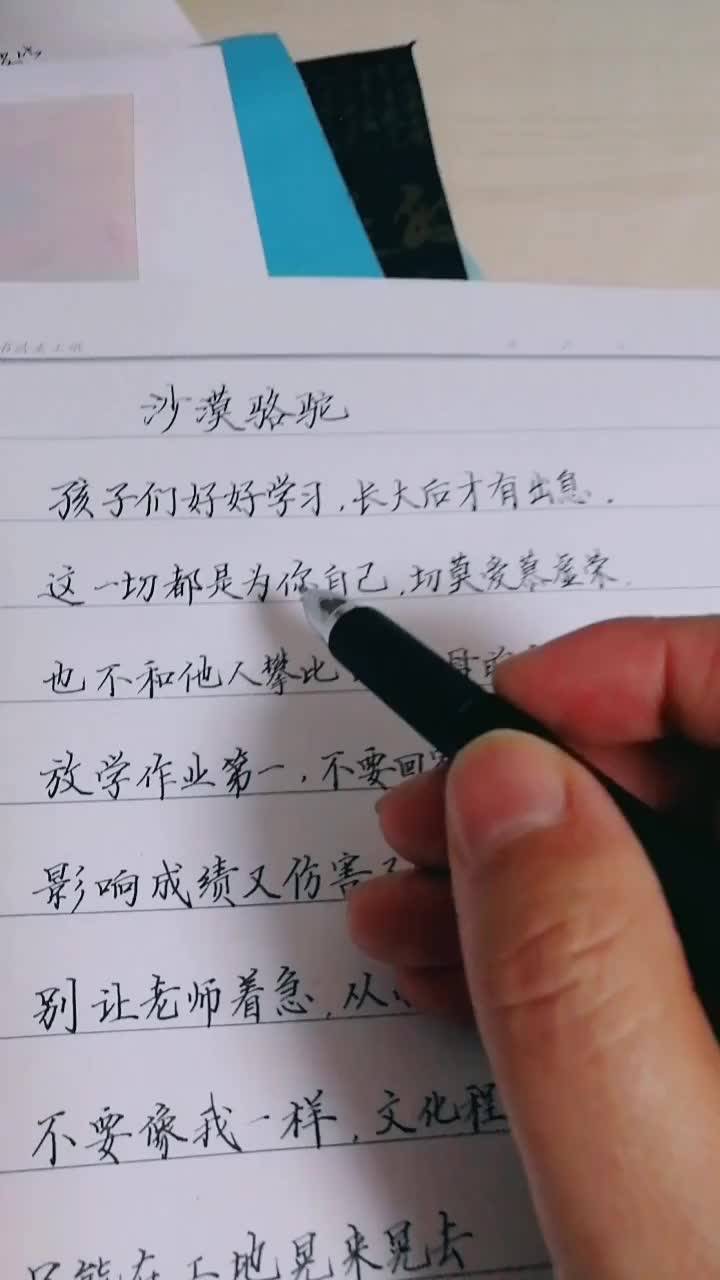 沙漠骆驼
孩子们好好学习，长大后才有出息．
这一切都是为你自己，切莫爱慕虚荣．
也不和他人攀比
放学作业第一，不要回家
影响成绩又伤害
别让老师着急，从
不要像我一样，文化程
只能在工地晃来晃去